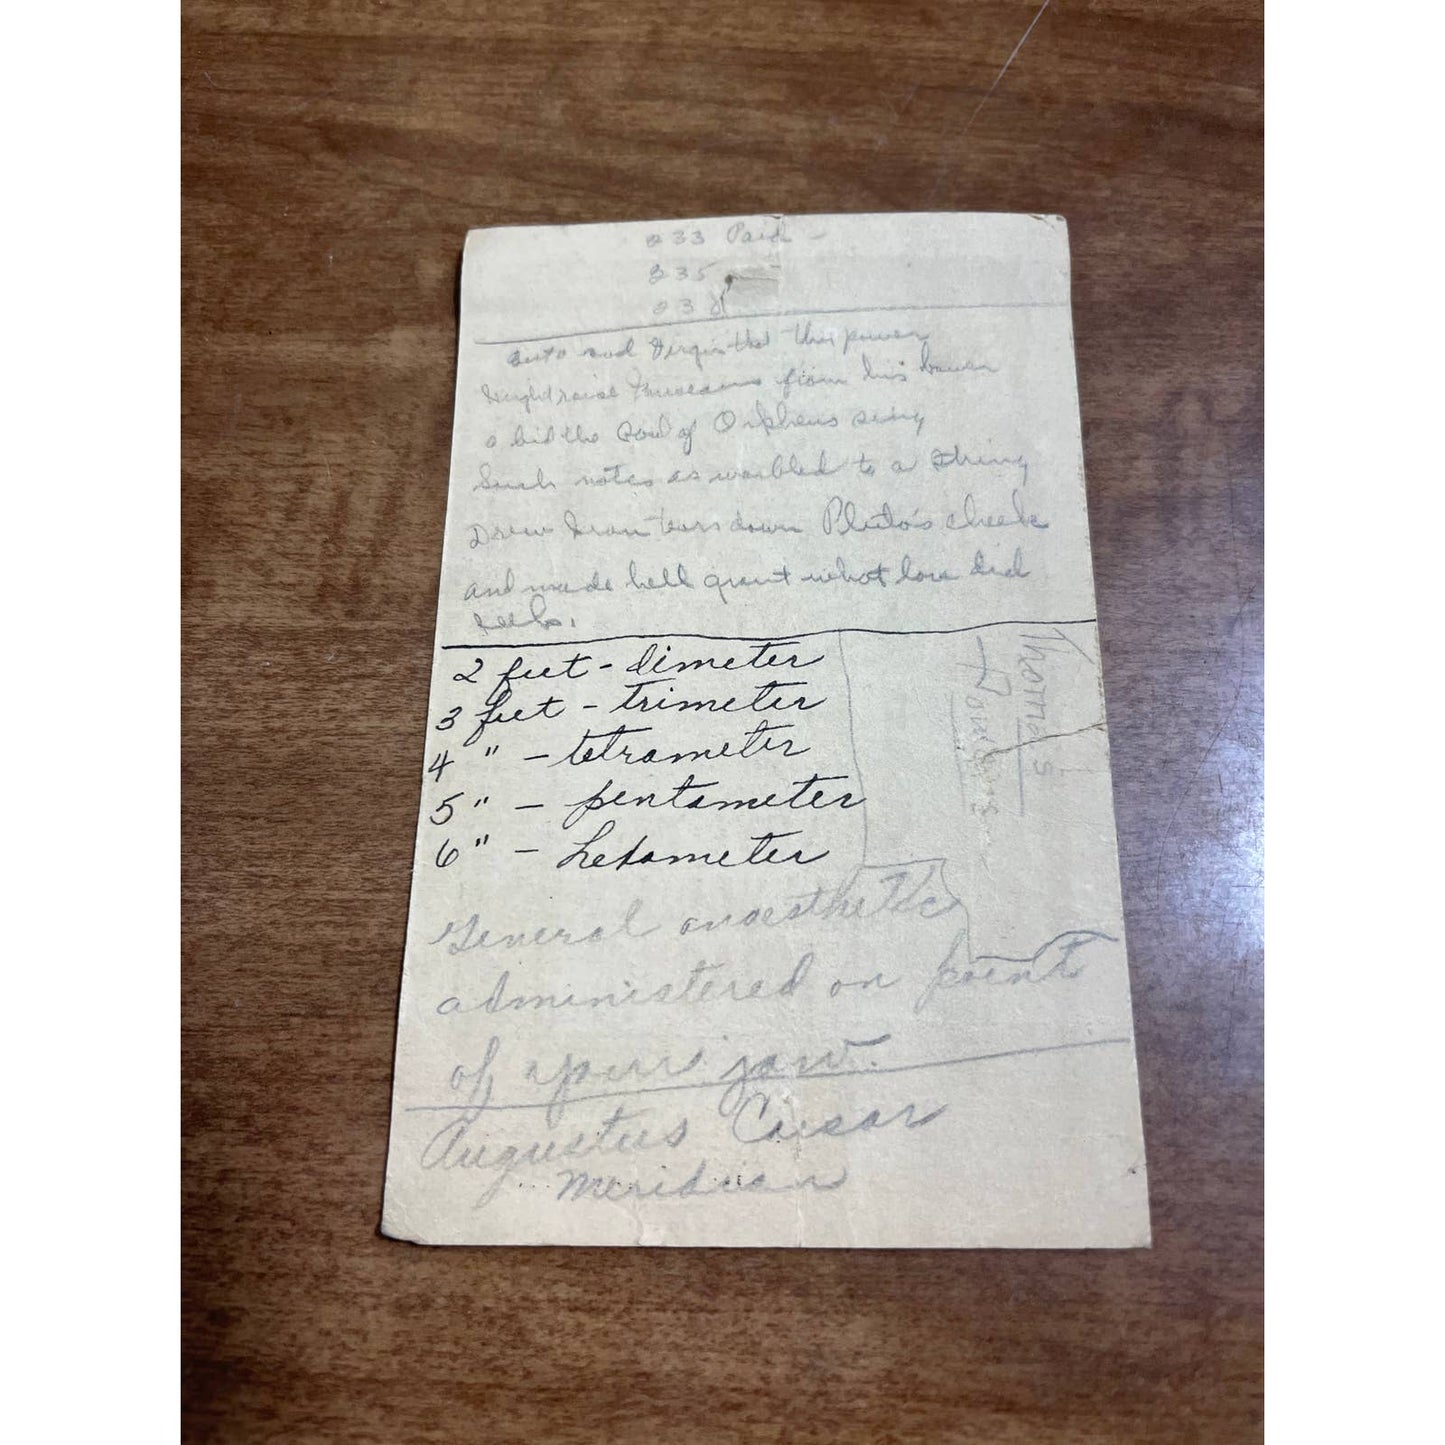 233 Paid -
235 -
238
and that thy power
Might raise Musaeus from his bower
a bid the soul of Orpheus sing
Such notes as warbled to a string
Drew Iron tears down Pluto's cheek
and made hell grant what love did
seek.
2 feet - dimeter
3 feet - trimeter
4 " - tetrameter
5 " - pentameter
6 " - hexameter
Thomas
General anaesthetic
administered on point
of your jaw.
Augustus Caesar
Meridian